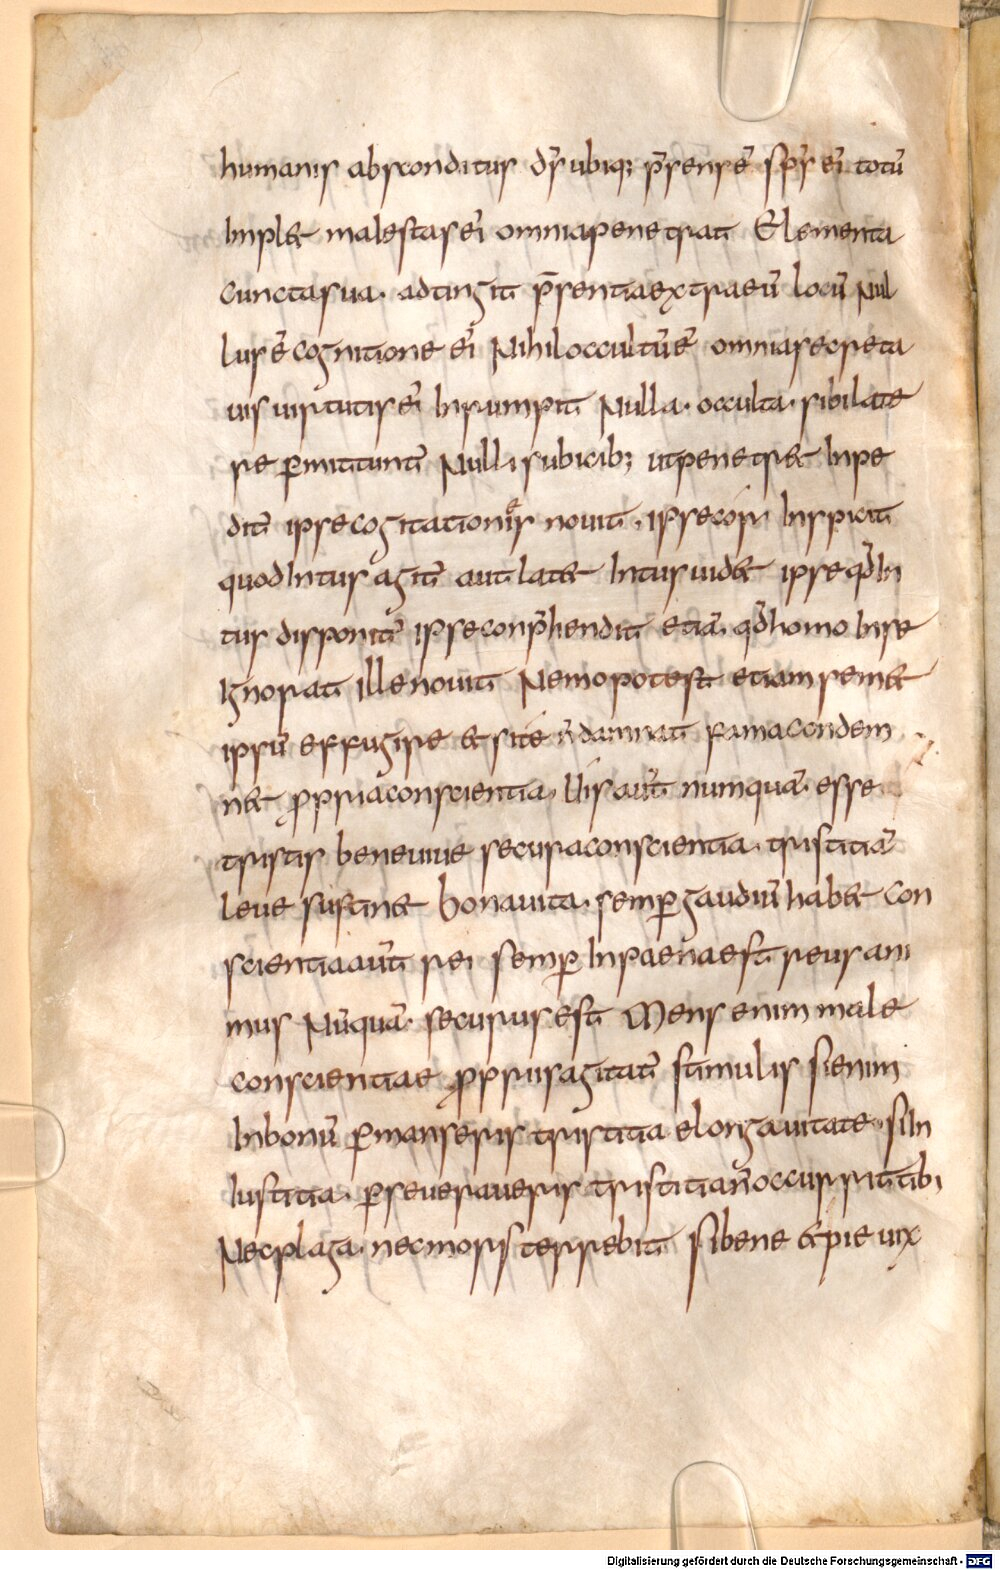 humanis absconditus dſ̄ ubiq; p̄sens ē sps̄ ei totū
Inplet maiestas ei omnia penetrat Elementa
cuncta sua. adtingit p̄sentia extra eū locū Nul
lus ē cognitione ei Nihil occultū ē omnia secreta
uis uirtutis ei Inrumpit Nulla. occulta. sibi late
re p̄mittunt̄ Nulli subicib; ut penetret Inpe
dit̄ ipse cogitationes nouit. ipse cor Inspicit
quod Intus agit̄ aut latet Intus uidet ipse qd̄ In
tus disponit̄ ipse conp̄hendit etiā. qd̄ homo In se
Ignorat Ille nouit Nemo potest etiam semet
ipsū effugire et si te n̄ damnat fama condem
net propria conscientia. Uis aūt numquā. esse
tristis bene uiue secura conscientia. tristitiā
leue sustinet bona uita. semp̄ gaudiū habet con
scientia aūt rei semp̄ In paena est reus ani
mus Nūquā. securus est Mens enim male
conscientiae propriis agitat̄ stimulis si enim
In bonū p̄manseris tristitia elongauit a te. si In
Iustitia. p̄seueraueris tristitia n̄ occurrit tibi
Nec plaga. nec mors terrebit si bene et pie uix
Digitalisierung gefördert durch die Deutsche Forschungsgemeinschaft - DFG